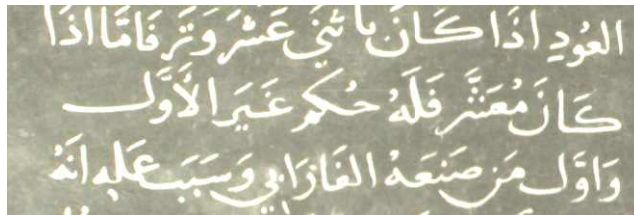 العُودِ اذَا كَانَ باثني عَشْرَ وَتَرَ فَامَّا اذَا
كَانَ مُعَشَّر فَلَهُ حُكم غَيرَ الأَوَّل
وَاوَّل مَن صَنعَهُ الفَارَابي وَسَبَب عَلِهِ انَهُ